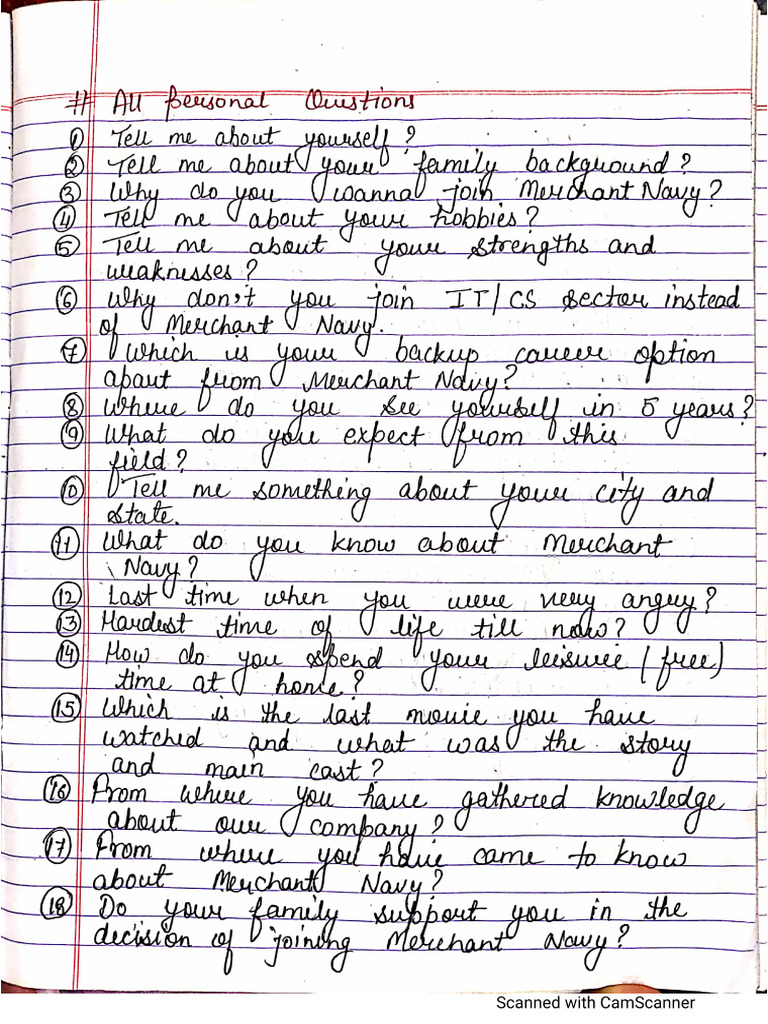 # All Personal Questions
① Tell me about yourself?
② Tell me about your family background?
③ Why do you wanna join Merchant Navy?
④ Tell me about your hobbies?
⑤ Tell me about your strengths and
weaknesses?
⑥ Why don't you join IT/CS sector instead
of Merchant Navy.
⑦ Which is your backup career option
apart from Merchant Navy?
⑧ Where do you see yourself in 5 years?
⑨ What do you expect from this
field?
⑩ Tell me something about your city and
state.
⑪ What do you know about Merchant
Navy?
⑫ Last time when you were very angry?
⑬ Hardest time of life till now?
⑭ How do you spend your leisure (free)
time at home?
⑮ Which is the last movie you have
watched and what was the story
and main cast?
⑯ From where you have gathered knowledge
about our company?
⑰ From where you have came to know
about Merchant Navy?
⑱ Do your family support you in the
decision of joining Merchant Navy?
Scanned with CamScanner